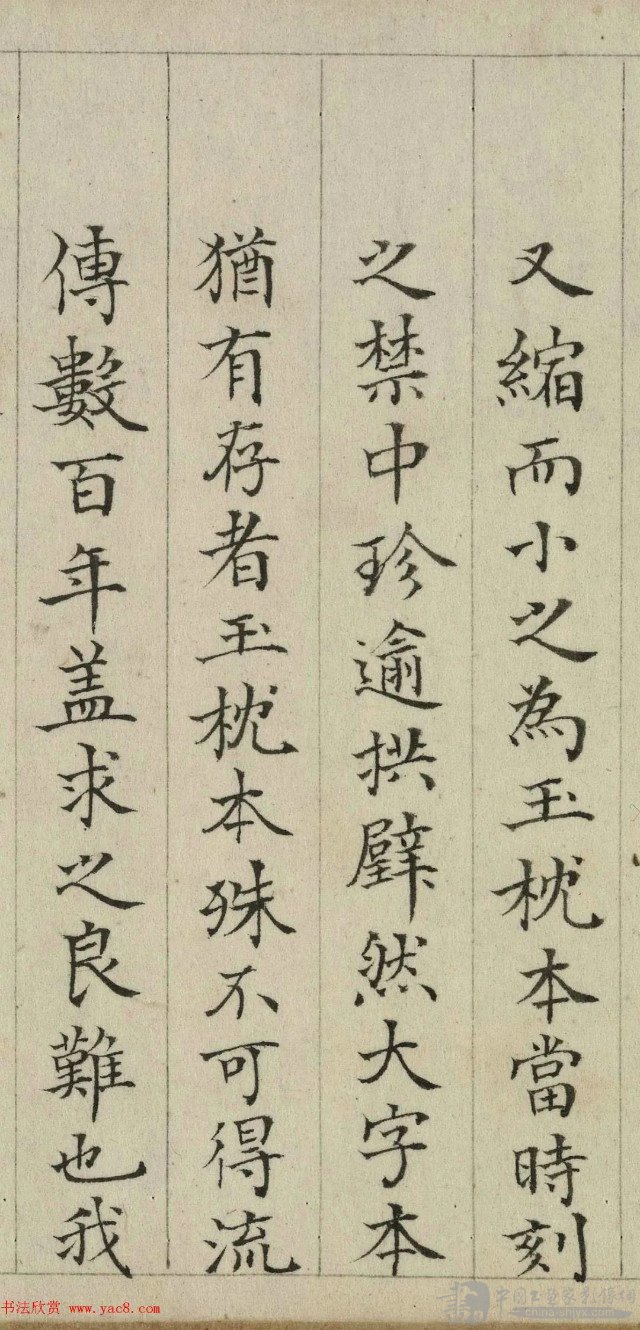 又縮而小之為玉枕本當時刻
之禁中珍逾拱璧然大字本
猶有存者玉枕本殊不可得流
傳數百年盖求之良難也我
书法欣赏 www.yac8.com
china-shyx.com